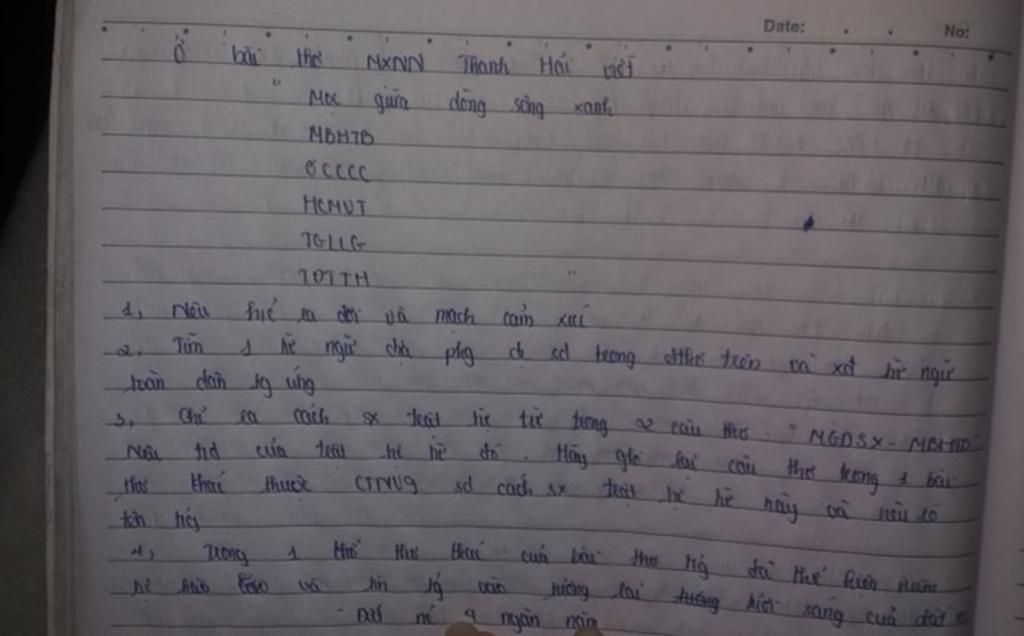 Date: No:
Ở bài thơ MXNN Thanh Hải viết
" Mọc giữa dòng sông xanh
MBHTB
ƠCCCC
HCMVT
TGLLG
TĐTTH "
1, Nêu h/c ra đời và mạch cảm xúc
2, Tìm 1 từ ngữ địa phg đc sd trong thơ trên và xđ từ ngữ
toàn dân tg ứng
3, Chỉ ra cách sx trật tự từ trong 2 câu thơ " MGDSX - MBHTB"
Nêu td của trật tự từ đó. Hãy ghi lại câu thơ trong 1 bài
thơ khác thuộc CTNV9 sd cách sx trật tự từ này và nêu rõ
tên
4, Trong 1 khổ thơ khác của bài thơ đã thể hiện niềm
tự hào và tin vào tương lai tươi sáng của đất
" Đất nc 4 ngàn năm